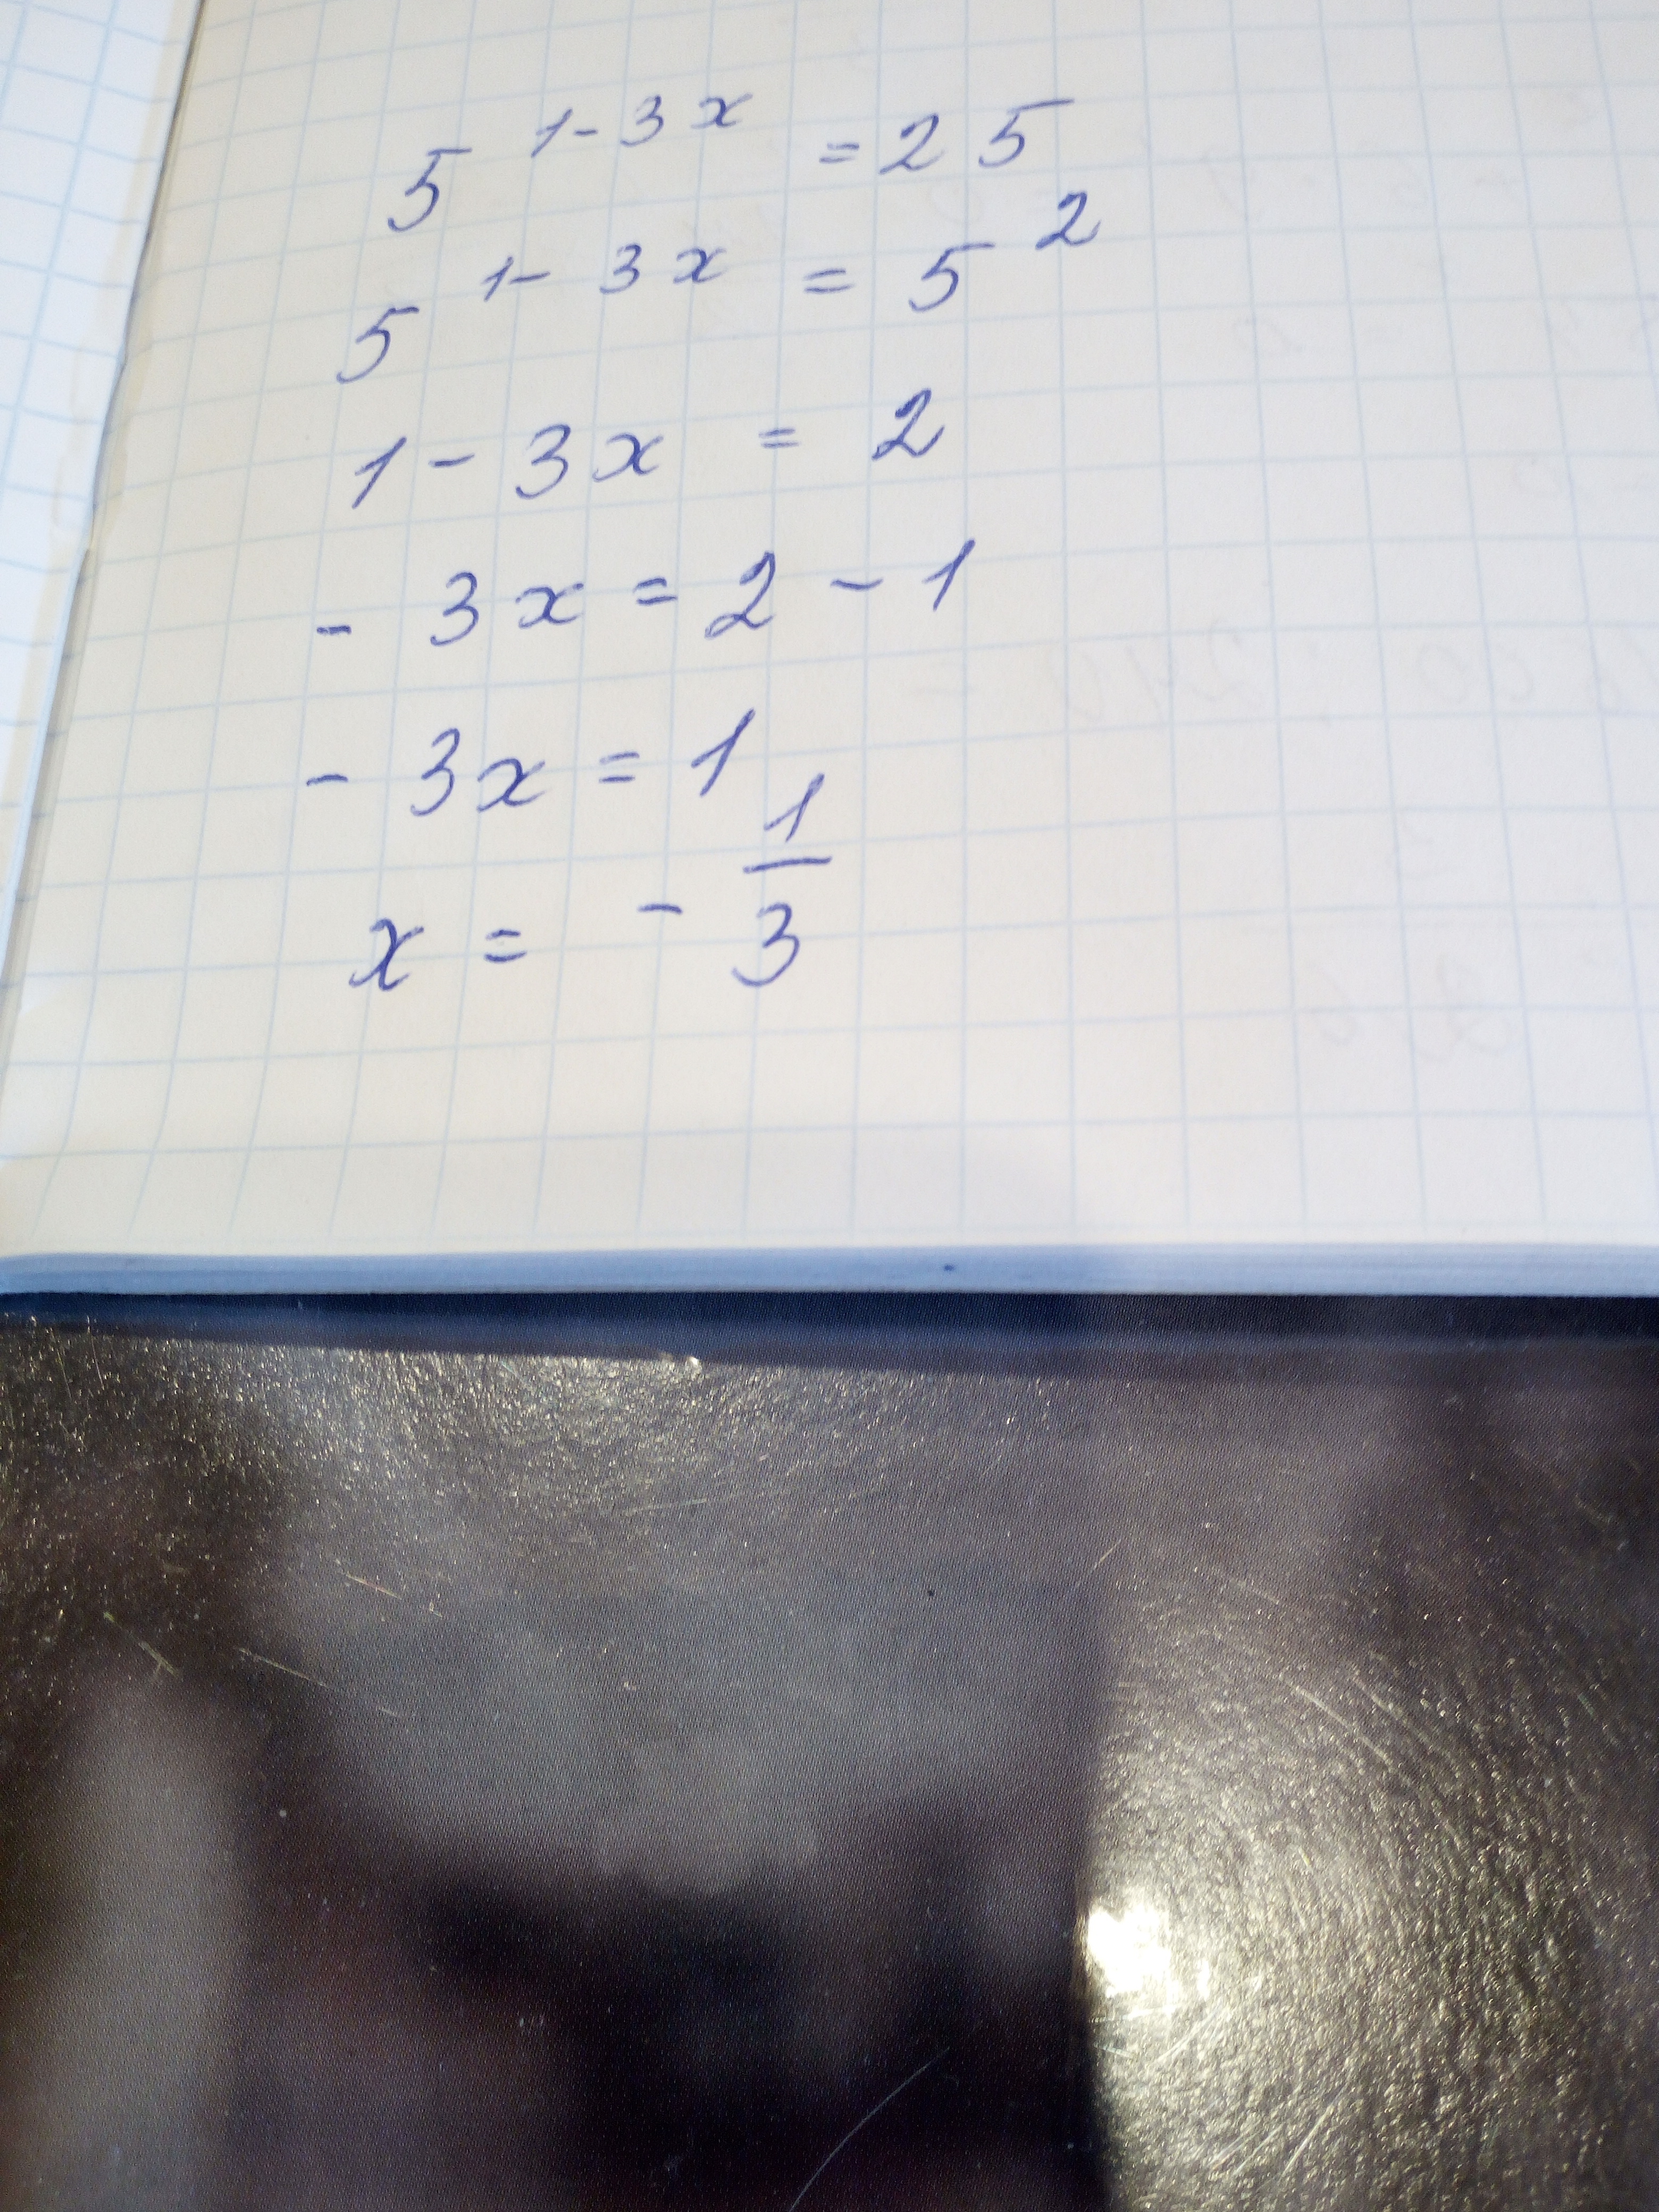 5^{1-3x} = 25
5^{1-3x} = 5^2
1 - 3x = 2
- 3x = 2 - 1
- 3x = 1
x = - \frac{1}{3}